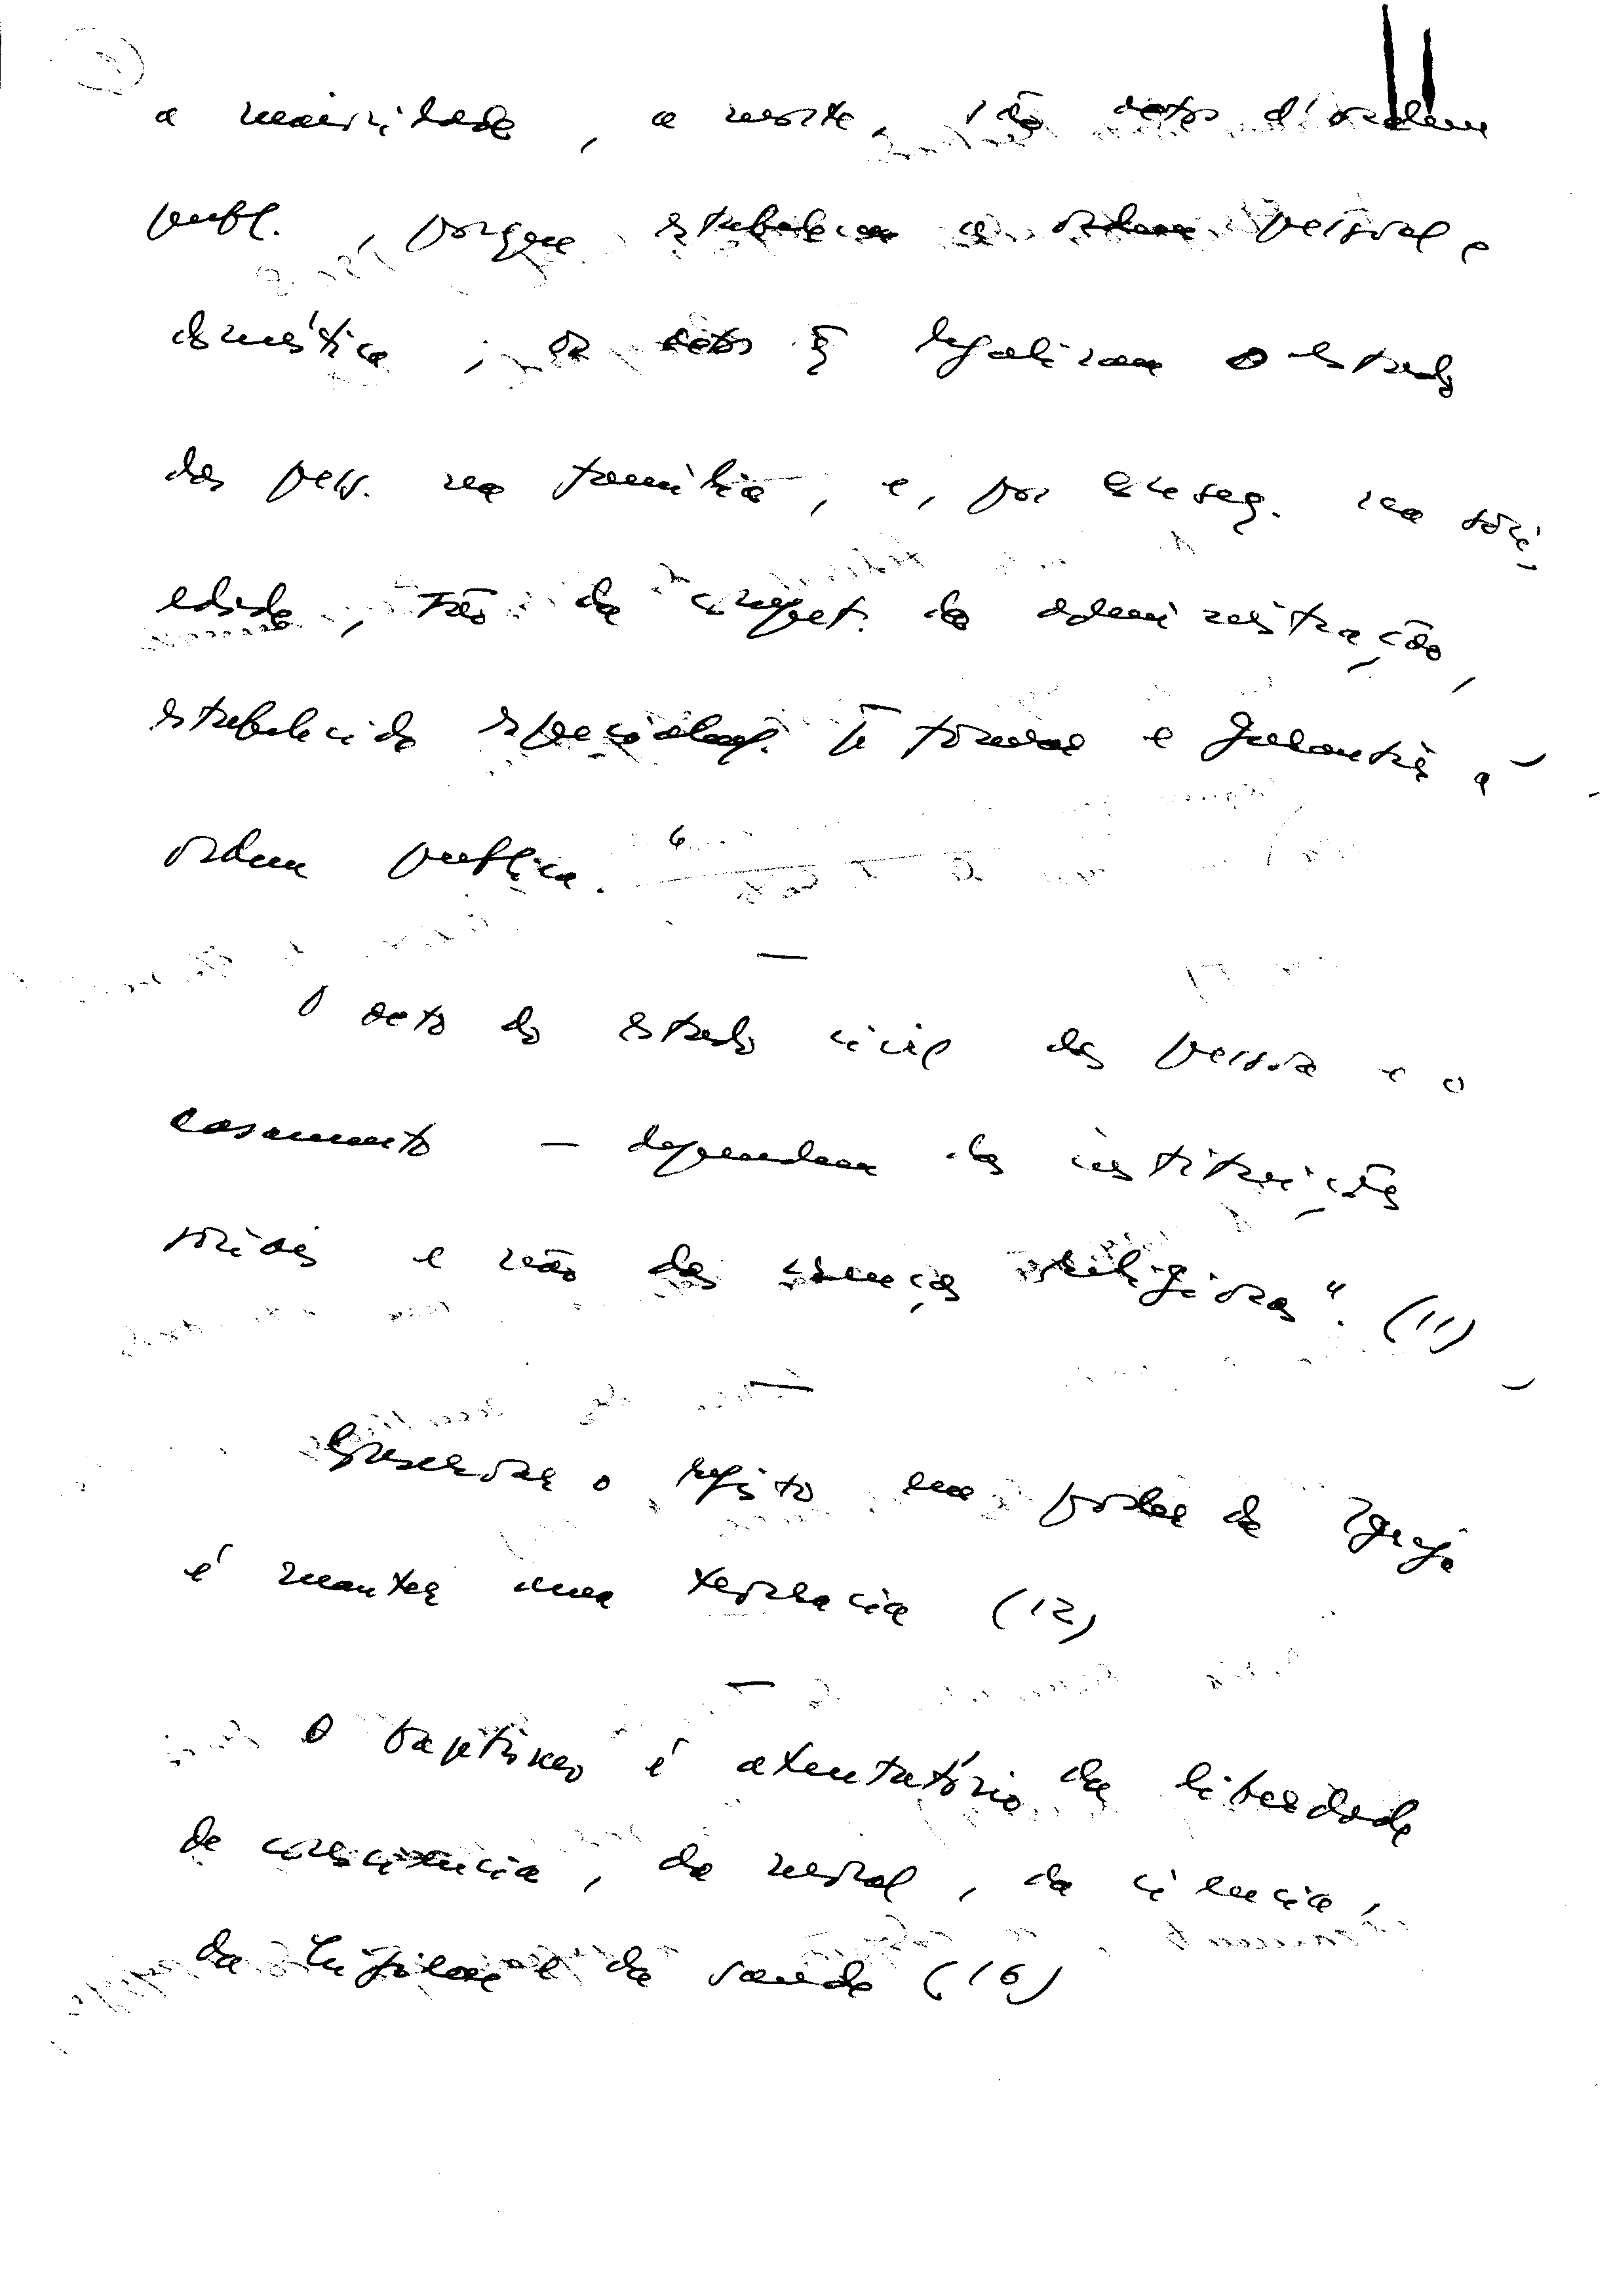 a maioridade, a morte, são actos d'ordem
publ., porque estabelecem a ordem pessoal e
doméstica; os actos q̃ legalizam o estado
das pess. na família, e, por conseq. na soci-
edade, são da compet. da administração,
estabelecida especialmt. pª formar e garantir a
ordem publica. 6
—
O acto do estado civil das pessoas e o
casamento — dependem das instituições
sociais e não das crenças religiosas". (11)
—
Conservar o registo em poder da Igreja
é manter uma teocracia (12)
—
O baptismo é atentatório da liberdade
de consciência, da moral, da ciencia,
da higiene e da saude (16)